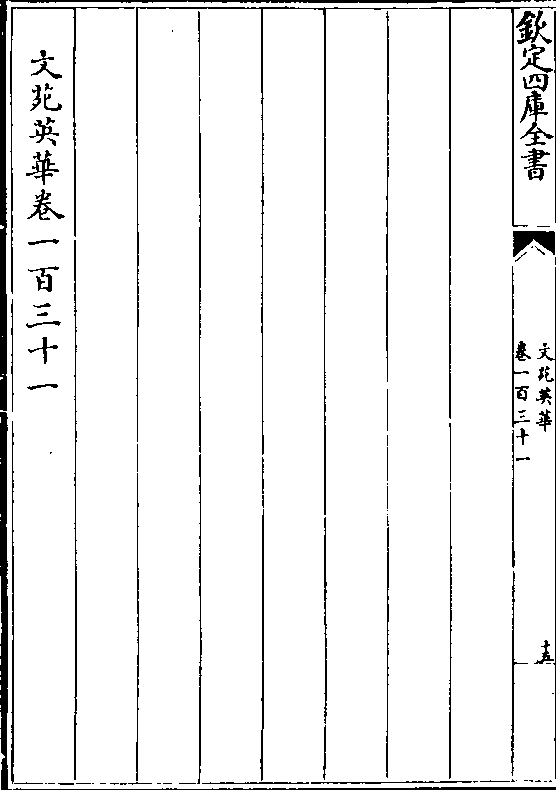 欽定四庫全書
文苑英華
卷一百三十一
十五
文苑英華卷一百三十一